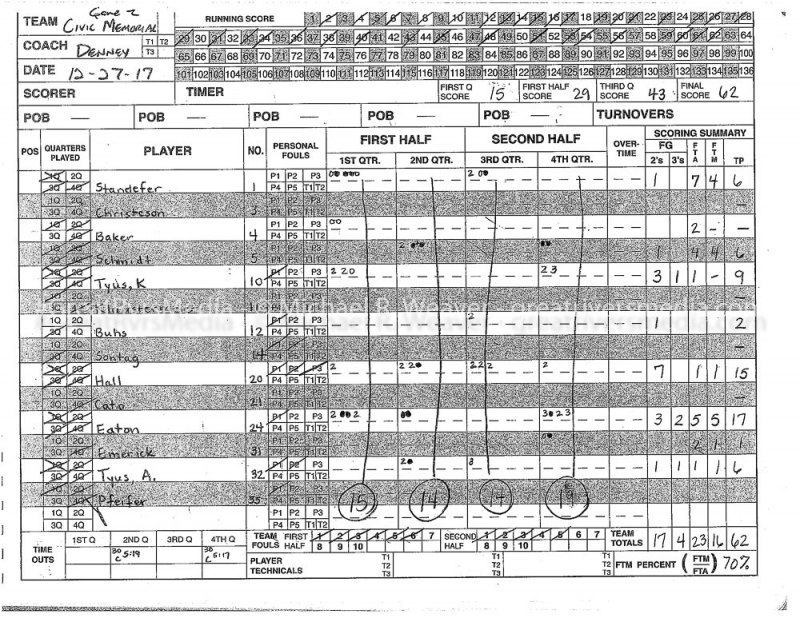 TEAM Game 2 Civic Memorial
RUNNING SCORE 1 2 3 4 5 6 7 8 9 10 11 12 13 14 15 16 17 18 19 20 21 22 23 24 25 26 27 28
COACH Denney T1 T2 T3
29 30 31 32 33 34 35 36 37 38 39 40 41 42 43 44 45 46 47 48 49 50 51 52 53 54 55 56 57 58 59 60 61 62 63 64
65 66 67 68 69 70 71 72 73 74 75 76 77 78 79 80 81 82 83 84 85 86 87 88 89 90 91 92 93 94 95 96 97 98 99 100
DATE 12-27-17
101 102 103 104 105 106 107 108 109 110 111 112 113 114 115 116 117 118 119 120 121 122 123 124 125 126 127 128 129 130 131 132 133 134 135 136
SCORER TIMER FIRST Q SCORE 15 FIRST HALF SCORE 29 THIRD Q SCORE 43 FINAL SCORE 62
POB — POB — POB — POB — POB — TURNOVERS
POS QUARTERS PLAYED PLAYER NO. PERSONAL FOULS FIRST HALF SECOND HALF OVER-TIME SCORING SUMMARY
1ST QTR. 2ND QTR. 3RD QTR. 4TH QTR. FG 2's 3's FTA FTM TP
1Q 2Q 3Q 4Q Standefer 1 P1 P2 P3 P4 P5 T1 T2 1 7 4 6
1Q 2Q 3Q 4Q Christeson 3 P1 P2 P3 P4 P5 T1 T2 —
1Q 2Q 3Q 4Q Baker 4 P1 P2 P3 P4 P5 T1 T2 2 - —
1Q 2Q 3Q 4Q Schmidt 5 P1 P2 P3 P4 P5 T1 T2 1 4 4 6
1Q 2Q 3Q 4Q Tyus, K 10 P1 P2 P3 P4 P5 T1 T2 2 2 0 2 3 3 1 1 - 9
1Q 2Q 3Q 4Q Buhs 12 P1 P2 P3 P4 P5 T1 T2 2 1 2
1Q 2Q 3Q 4Q Sontag 14 P1 P2 P3 P4 P5 T1 T2 —
1Q 2Q 3Q 4Q Hall 20 P1 P2 P3 P4 P5 T1 T2 2 2 2 0 2 2 2 2 7 1 1 15
1Q 2Q 3Q 4Q Cato 21 P1 P2 P3 P4 P5 T1 T2 —
1Q 2Q 3Q 4Q Eaton 24 P1 P2 P3 P4 P5 T1 T2 3 2 5 5 17
1Q 2Q 3Q 4Q Emerick 31 P1 P2 P3 P4 P5 T1 T2 2 1 1
1Q 2Q 3Q 4Q Tyus, A. 32 P1 P2 P3 P4 P5 T1 T2 3 1 1 1 1 6
1Q 2Q 3Q 4Q Pfeifer 35 P1 P2 P3 P4 P5 T1 T2 15 14 14 19
1Q 2Q 3Q 4Q P1 P2 P3 P4 P5 T1 T2
TIME OUTS 1ST Q 2ND Q 3RD Q 4TH Q
30 C 5:19 30 C 5:17
TEAM FOULS FIRST HALF 1 2 3 4 5 6 7 8 9 10 SECOND HALF 1 2 3 4 5 6 7 8 9 10 TEAM TOTALS 17 4 23 16 62
PLAYER TECHNICALS T1 T2 T3 T1 T2 T3 T1 T2 T3 FTM PERCENT (FTM/FTA) 70%